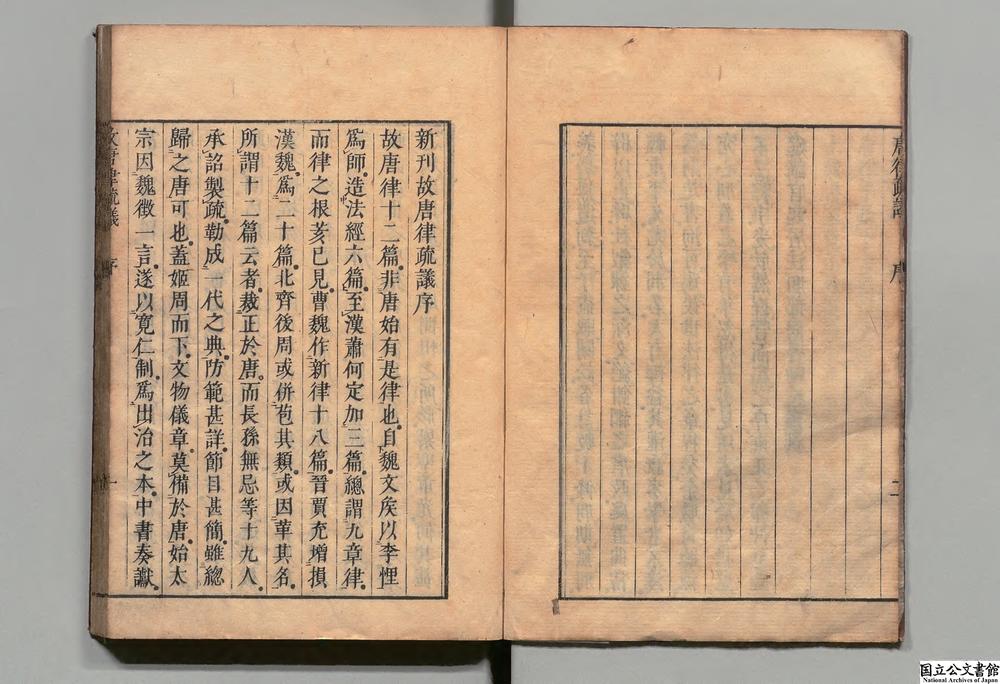 唐律疏議
序
二
新刊故唐律疏議序
故唐律十二篇非唐始有是律也自魏文矦以李悝
爲師造法經六篇至漢蕭何定加三篇總謂九章律
而律之根荄已見曹魏作新律十八篇晉賈充增損
漢魏爲二十篇北齊後周或併苞其類或因革其名
所謂十二篇云者裁正於唐而長孫無忌等十九人
承詔製疏勒成一代之典防範甚詳節目甚簡雖總
歸之唐可也蓋姬周而下文物儀章莫備於唐始太
宗因魏徵一言遂以寬仁制爲出治之本中書奏讞
故唐律疏議
序
一
国立公文書館
National Archives of Japan